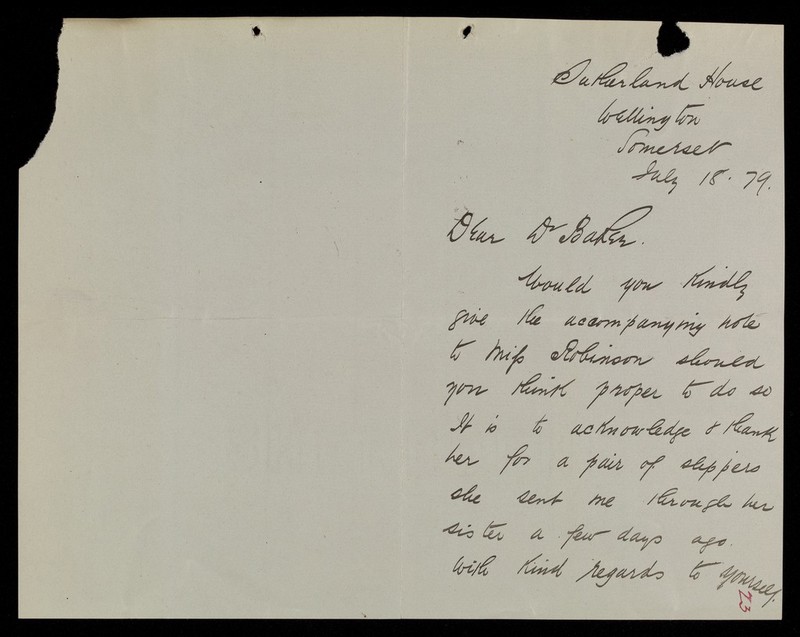 Sutherland House
Wellington
Somerset
July 18. 79.
Dear Dr Baker.
Would you kindly
give the accompanying note
to Miss Robinson should
you think proper to do so
It is to acknowledge & thank
her for a pair of slippers
she sent me through her
sister a few days ago.
With kind regards to yourself.
23